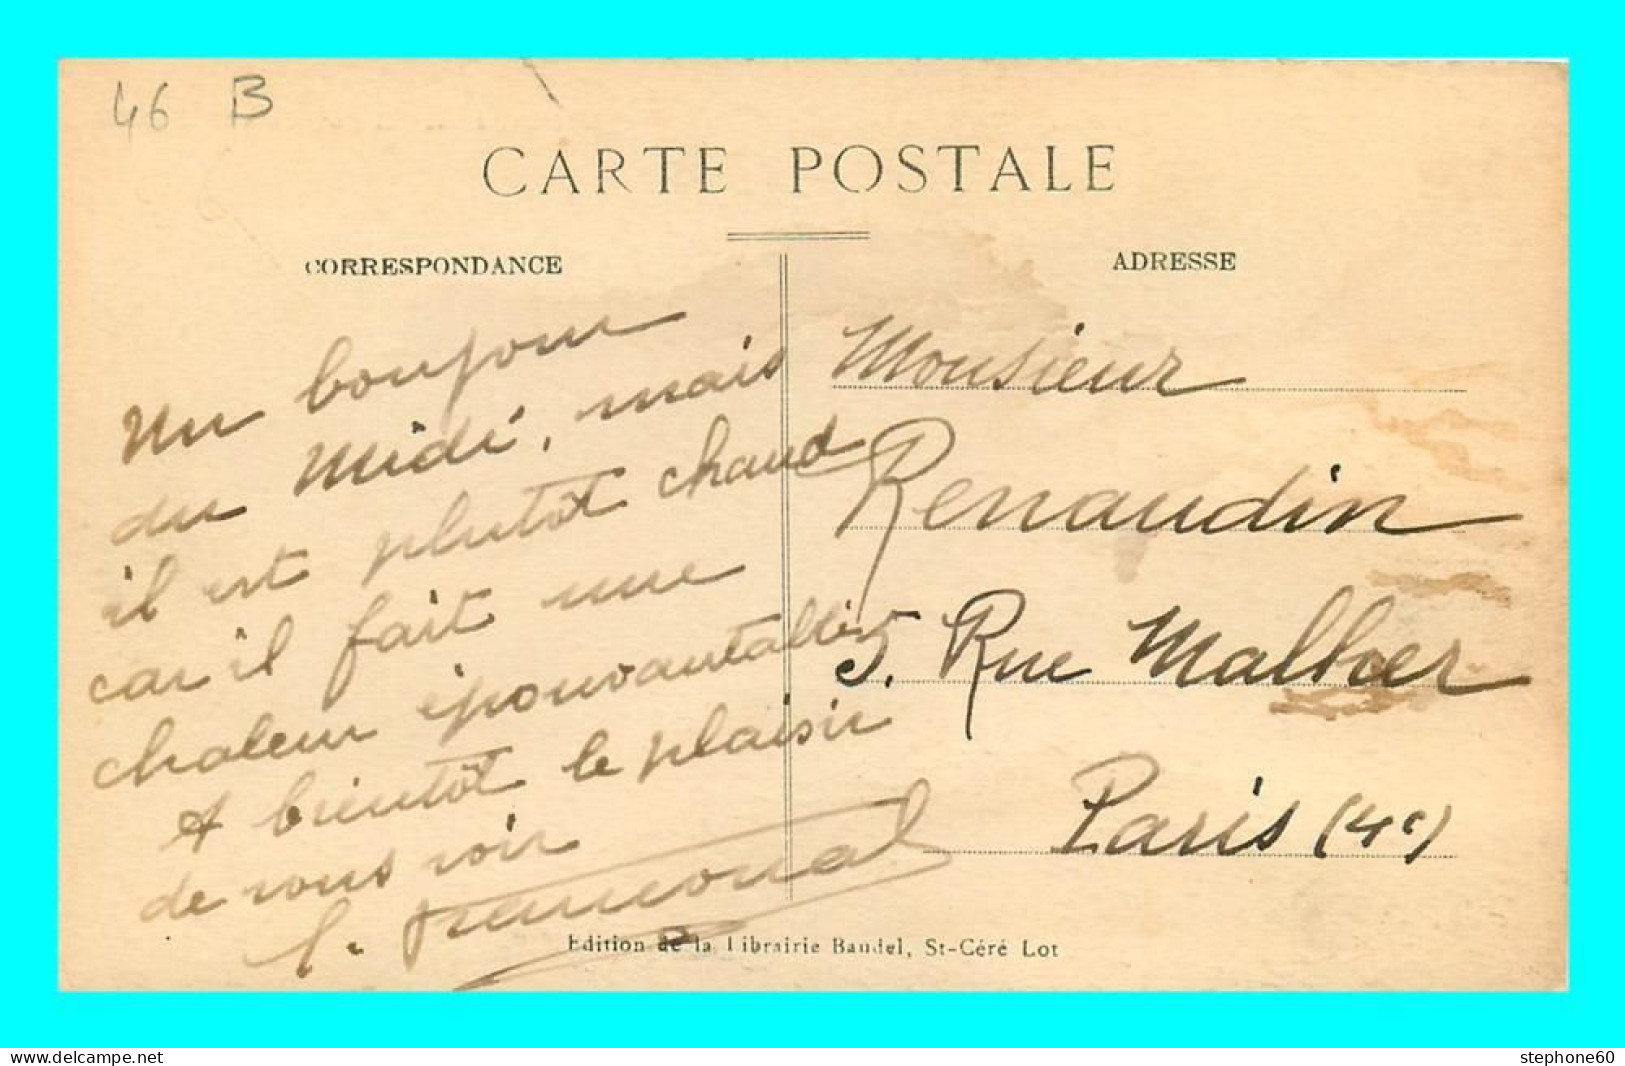 46 B
CARTE POSTALE
CORRESPONDANCE
ADRESSE
Un bonjour
du midi, mais
il est plutôt chaud
car il fait une
chaleur épouvantable
A bientôt le plaisir
de vous voir
Monsieur
Renaudin
5. Rue Malher
Paris (4e)
Edition de la Librairie Baudel, St-Céré Lot
www.delcampe.net
stephone60